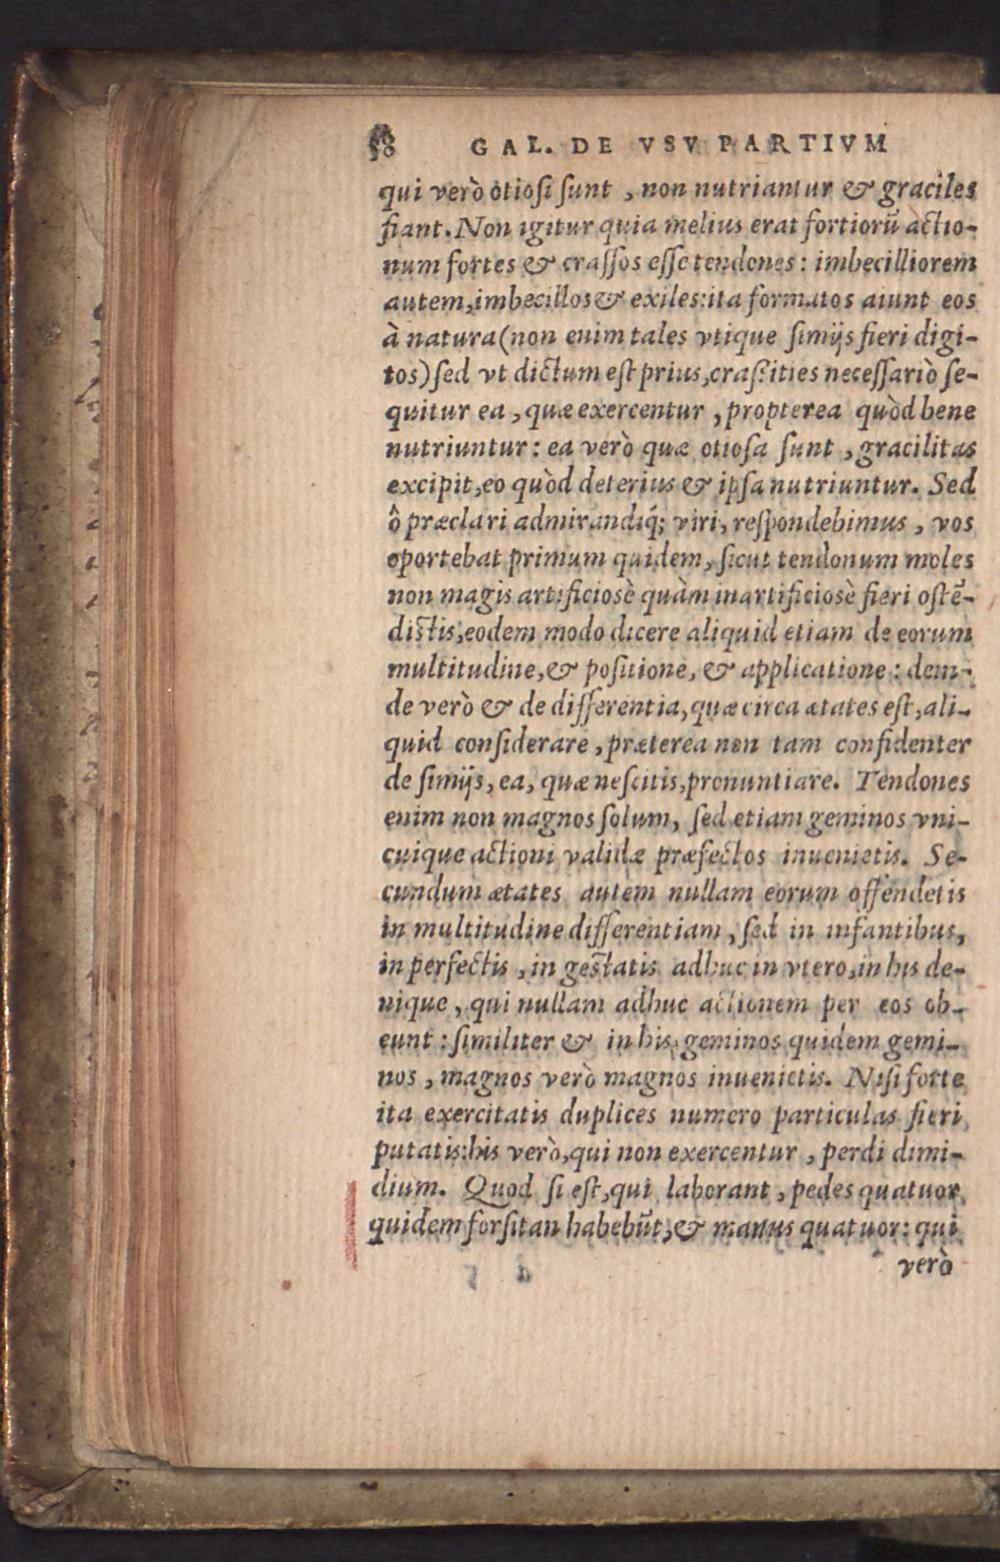 58 GAL. DE VSV PARTIVM
qui verò otiosi sunt, non nutriantur & graciles
fiant. Non igitur quia melius erat fortiorũ actio-
num fortes & crassos esse tendones: imbecilliorem
autem, imbecillos & exiles: ita formatos aiunt eos
à natura (non enim tales vtique simijs fieri digi-
tos) sed vt dictum est prius, crassities necessariò se-
quitur ea, quæ exercentur, propterea quòd bene
nutriuntur: ea verò quæ otiosa sunt, gracilitas
excipit, eo quòd deterius & ipsa nutriuntur. Sed
ô præclari admirandiq́; viri, respondebimus, vos
oportebat primum quidem, sicut tendonum moles
non magis artificiosè quàm inartificiosè fieri ostẽ-
distis, eodem modo dicere aliquid etiam de eorum
multitudine, & positione, & applicatione: dein-
de verò & de differentia, quæ circa ætates est, ali-
quid considerare, præterea non tam confidenter
de simijs, ea, quæ nescitis, pronuntiare. Tendones
enim non magnos solum, sed etiam geminos vni-
cuique actioni validæ præfectos inuenietis. Se-
cundum ætates autem nullam eorum offendetis
in multitudine differentiam, sed in infantibus,
in perfectis, in gestatis adhuc in vtero, in his de-
nique, qui nullam adhuc actionem per eos ob-
eunt: similiter & in his, geminos quidem gemi-
nos, magnos verò magnos inuenietis. Nisi forte
ita exercitatis duplices numero particulas fieri
putatis: his verò, qui non exercentur, perdi dimi-
dium. Quod si est, qui laborant, pedes quatuor
quidem forsitan habebũt, & manus quatuor: qui
verò